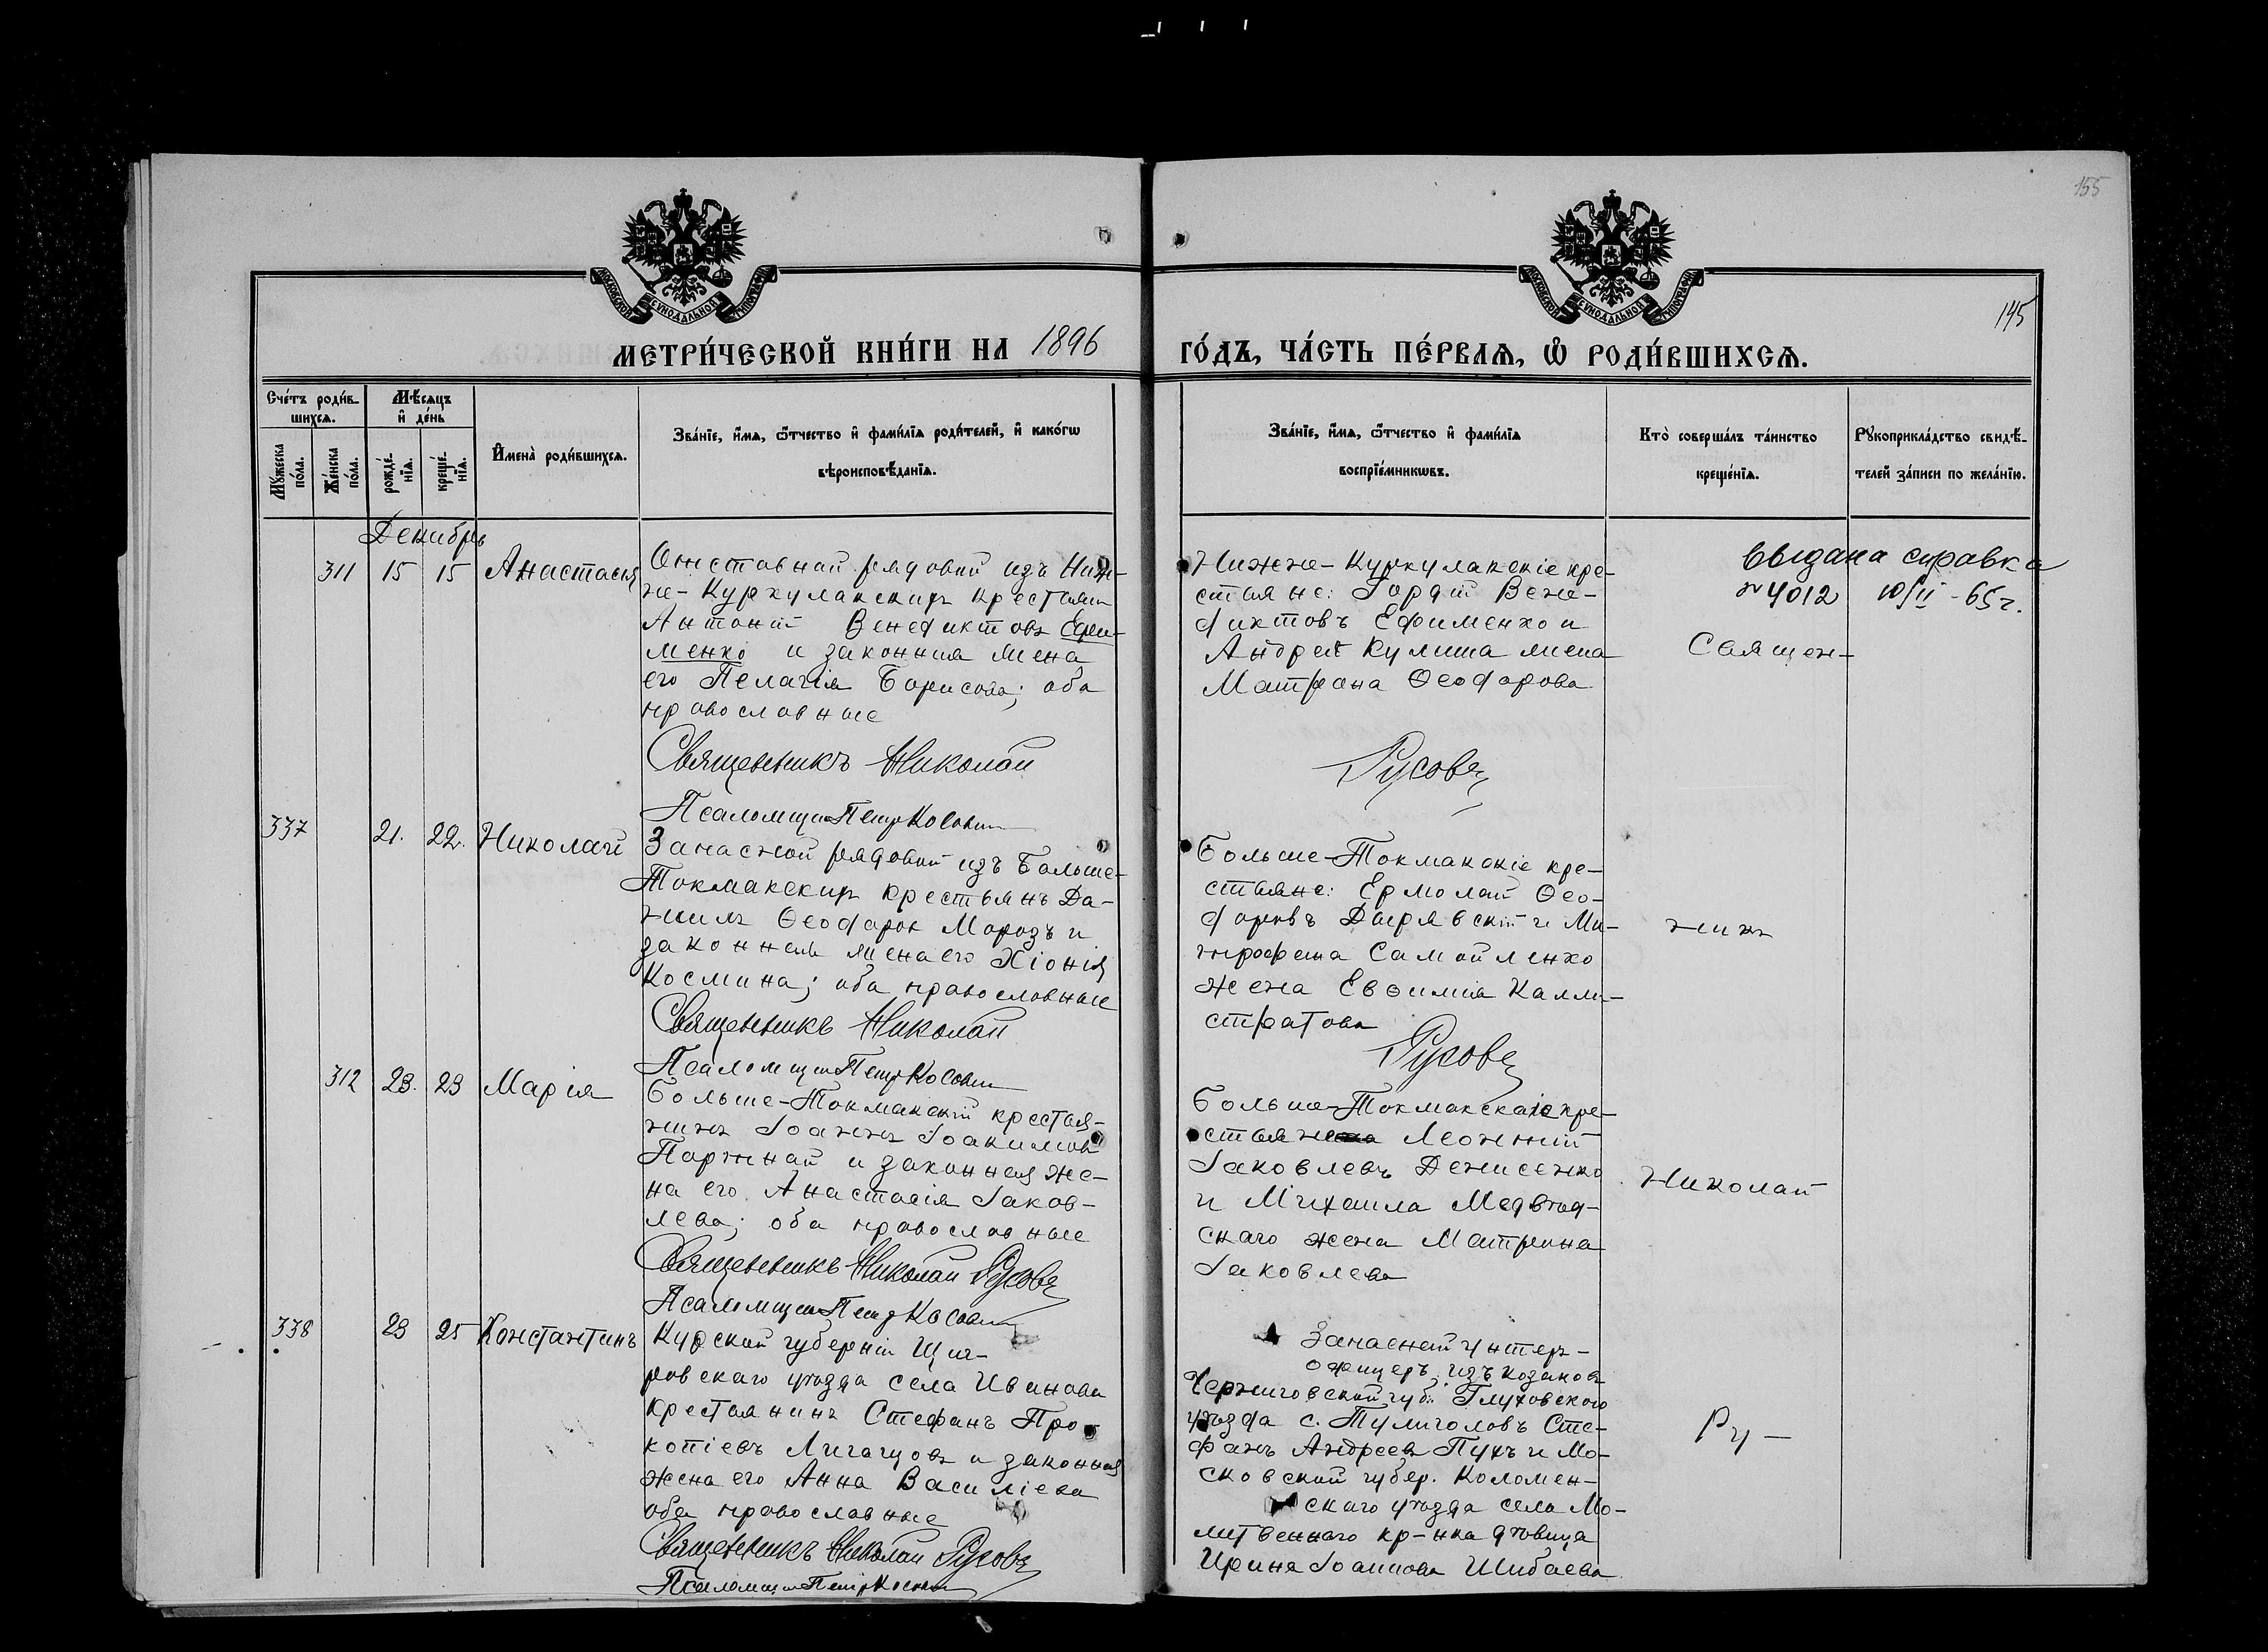 155
145
МЕТРИ́ЧЕСКОЙ КНИ́ГИ НА 1896 ГО́ДЪ, ЧА́СТЬ ПЕ́РВАѦ, Ѽ РОДИ́ВШИХСѦ.
Сче́тъ роди́в-
шихсѧ.
Мѣ́сѧцъ
и҆ де́нь
Мꙋ́жеска
по́ла.
Же́нска
по́ла.
рожде́-
нїѧ.
креще́-
нїѧ.
И҆мена̀ роди́вшихсѧ.
Зва́нїе, и҆́мѧ, ѻ҆́тчество и҆ фами́лїѧ роди́телей, и҆ како́гѡ
вѣроисповѣ́данїѧ.
Зва́нїе, и҆́мѧ, ѻ҆́тчество и҆ фами́лїѧ
воспрїе́мникѡвъ.
Кто̀ соверша́лъ та́инство
креще́нїѧ.
Рꙋкоприкла́дство свидѣ́-
телей за́писи по жела́нїю.
Декабрь
311 15 15 Анастасія
Отставной рядовой изъ Ниж-
не-Куркулакскихъ крестьянъ
Антоній Венедиктовъ Ефи-
менко и законная жена
его Пелагія Борисова; оба
православные
Священникъ Николай Русовъ
Псаломщикъ Петръ Косовин
Нижне-Куркулакскіе кре-
стьяне: Гордій Вене-
диктовъ Ефименко и
Андрея Кулиша жена
Матрона Ѳеодорова
Выдана справка
№ 4012 10/II - 65 г.
Священ-
337 21. 22. Николай
Запасной рядовой изъ Больше-
Токмакскихъ крестьянъ Да-
ніилъ Ѳеодоровъ Морозъ и
законная жена его Хіонія
Космина; оба православные
Священникъ Николай Русовъ
Псаломщикъ Петръ Косовин
Больше-Токмакскіе кре-
стьяне: Ермолай Ѳео-
доровъ и Ми-
трофана Самойленко
жена Евѳимія Калли-
стратова
никъ
312 23. 23 Марія
Больше-Токмакскій крестья-
нинъ Іоаннъ Іоакимовъ
и законная же-
на его Анастасія Іаков-
лева; оба православные
Священникъ Николай Русовъ
Псаломщикъ Петръ Косовин
Больше-Токмакскіе кре-
стьяне Леонтій
Іаковлевъ Денисенко
и Михаила Медвѣд-
скаго жена Матрона
Іаковлева
Николай
338 23 25 Константинъ
Курской губерніи Щиг-
ровскаго уѣзда села Иванова
крестьянинъ Стефанъ Про-
копіевъ Лигачовъ и законная
жена его Анна Василіева
оба православные
Священникъ Николай Русовъ
Псаломщикъ Петръ Косовин
Запасной унтеръ-
офицеръ изъ козаковъ
Черниговской губ. Глуховского
уѣзда с. Тулиголовъ Сте-
фанъ Андреевъ Пухъ и Мо-
сковской губер. Коломен-
скаго уѣзда села Мо-
литвеннаго кр-нка дѣвица
Ирина Іоаннова Шибаева
Ру-